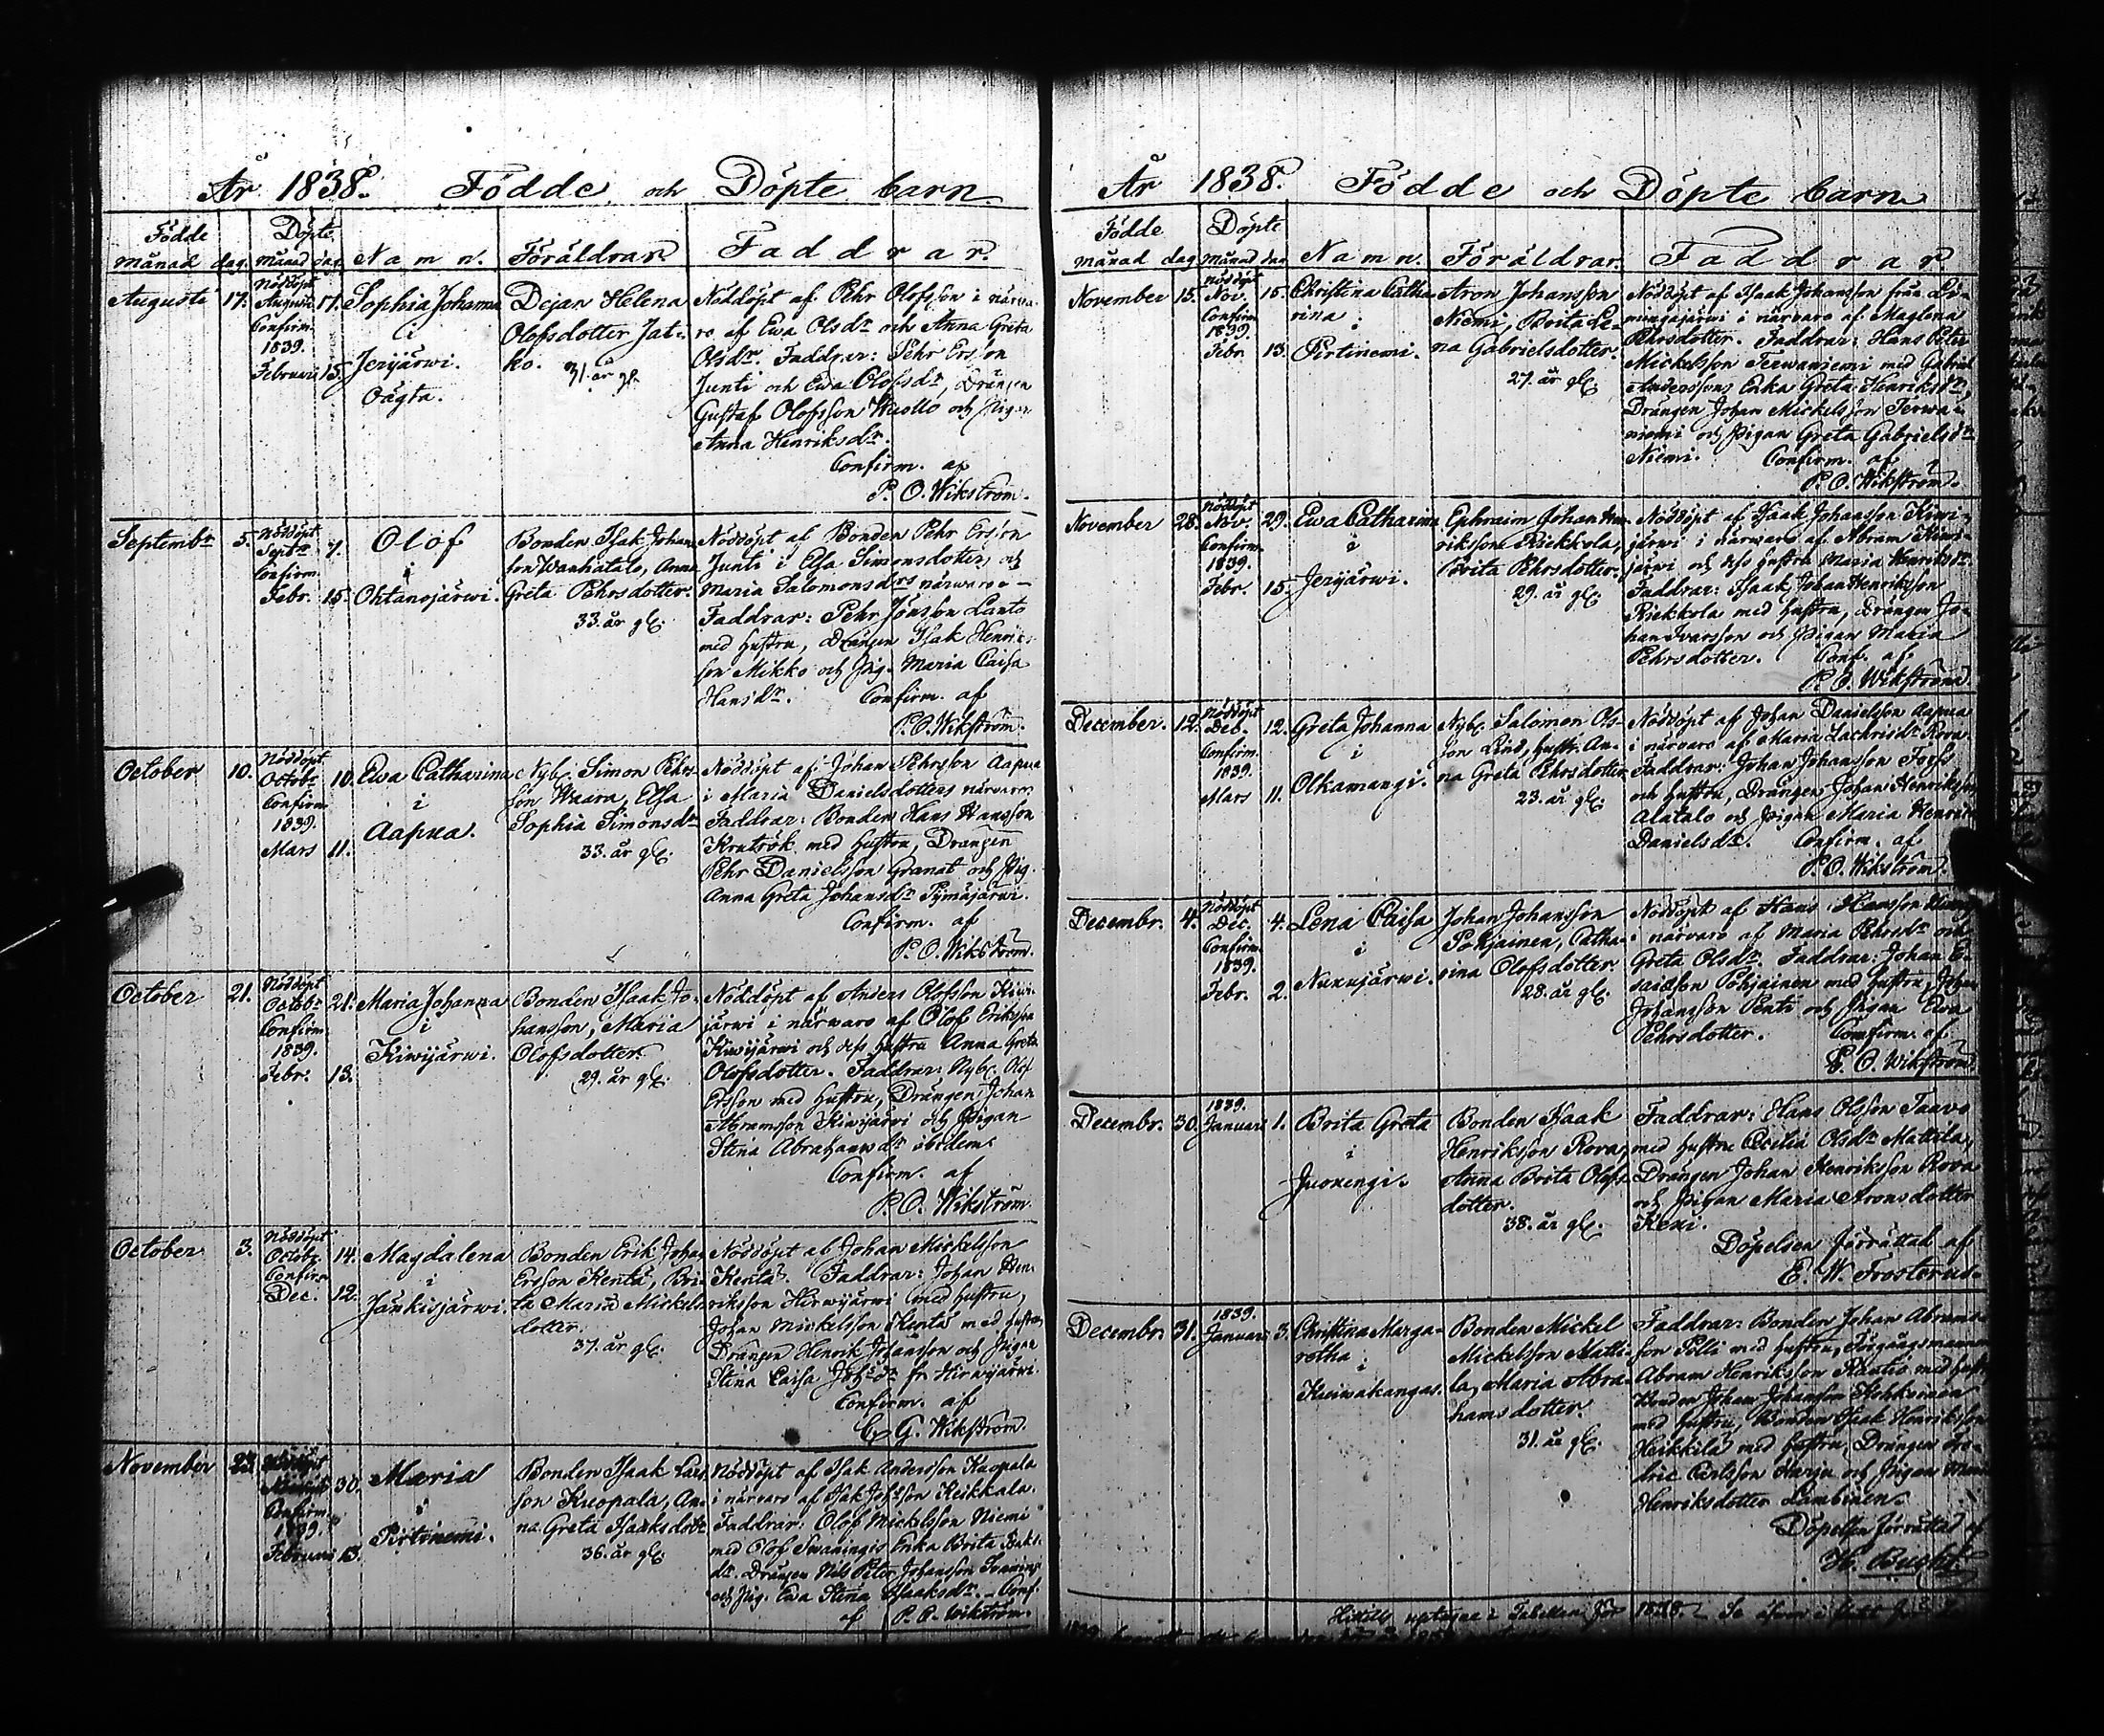 År 1838. Födde och Döpte barn.
Födde Döpte
månad dag. månad dag. Namn. Föräldrar. Faddrar.
Augusti 17. Nöddöpt Augusti 17. Confirm. 1839. Februari 15.
Sophia Johanna
i
Jerijärwi.
Oägta.
Dejan Helena
Olofsdotter Jat-
ko. 31. år gl.
Nöddöpt af Pehr Olofsson i närwa-
ro af Ewa Olsdr och Anna Greta
Olsdr. Faddrar: Pehr Ersson
Junti och Ewa Olofsdr, Drängen
Gustaf Olofsson Kuollo och Pigan
Anna Henriksdr.
Confirm. af
P. O. Wikström.
Septembr 5. Nöddöpt Septr 7. Confirm. Febr. 15.
Olof
i
Ohtanajärwi.
Bonden Isak Johans-
son Wanhatalo, Anna
Greta Pehrsdotter.
33. år gl.
Nöddöpt af Bonden Pehr Ersson
Junti i Elsa Simonsdotters och
Maria Salomonsdrs närwaro –
Faddrar: Pehr Jönsson Lanto
med hustru, Drängen Isak Henrics-
son Mikko och Pig. Maria Caisa
Hansdr. Confirm. af
P. O. Wikström.
October 10. Nöddöpt Octobr 10. Confirm. 1839. Mars 11.
Ewa Catharina
i
Aapua.
Nybg. Simon Pehrs-
son Waara, Elsa
Sophia Simonsdr
33. år gl.
Nöddöpt af Johan Pehrsson Aapua
i Maria Danielsdotters närwaro.
Faddrar: Bonden Hans Hansson
Krutrök med hustru, Drängen
Pehr Danielsson Granat och Pig.
Anna Greta Johansdr Pymäjärwi.
Confirm. af
P. O. Wikström.
October 21. Nöddöpt Octobr 21. Confirm. 1839. Febr. 13.
Maria Johanna
i
Kiwijärwi.
Bonden Isaak Jo-
hansson, Maria
Olofsdotter.
29. år gl.
Nöddöpt af Anders Olofsson Kiwi-
järwi i närwaro af Olof Eriksson
Kiwijärwi och dess hustru Anna Greta
Olofsdotter. Faddrar: Nybg. Olof
Ersson med hustru, Drängen Johan
Abramsson Kiwijärwi och Pigan
Stina Abrahamsdr ibidem.
Confirm. af
P. O. Wikström
October 3. Nöddöpt Octobr 14. Confirm. Dec. 12.
Magdalena
i
Jänkisjärwi.
Bonden Erik Johan
Ersson Kentä, Bri-
ta Maria Mickels-
dotter.
37. år gl.
Nöddöpt af Johan Mickelsson
Kentä. Faddrar: Johan Hen-
riksson Hirwijärwi med hustru,
Johan Mickelsson Kentä med hustru,
Drängen Henrik Johansson och Pigan
Stina Caisa Johsdr fr. Hirwijärwi.
Confirm. af
C. G. Wikström.
November 23. 30. Confirm. 1839. Februari 13.
Maria
i
Pirtinemi.
Bonden Isaak Lars-
son Kuopala, An-
na Greta Isaksdotr
36. år gl.
Nöddöpt af Isak Andersson Kuopala
i närwaro af Isak Johsson Keikkala.
Faddrar: Olof Mickelsson Niemi
med Olof Swaningis Enka Brita Isaks-
dr. Drängen Nils Peter Johansson Swaningi
och Pig. Ewa Stina Isaaksdr. – Conf.
af P. O. Wikström.
År 1838. Födde och Döpte barn.
Födde Döpte
månad dag månad dag Namn. Föräldrar. Faddrar.
November 15. Nöddöpt Nov. 15. Confirm 1839. Febr. 13.
Christina Catha-
rina
i
Pirtinemi.
Aron Johansson
Niemi, Brita Le-
na Gabrielsdotter.
27. år gl.
Nöddöpt af Isaak Johansson från Li-
mingojärwi i närwaro af Maglena
Pehrsdotter. Faddrar: Hans Peter
Mickelsson Terwaniemi med Gabriel
Anderssons Enka Greta Henriksdr,
Drängen Johan Mickelsson Terwa-
niemi och Pigan Greta Gabrielsdr
Niemi. Confirm. af
P. O. Wikström.
November 28. Nöddöpt Nov. 29. Confirm. 1839. Febr. 15.
Ewa Catharina
i
Jerijärwi.
Ephraim Johan Hen-
riksson Riekkola,
Brita Pehrsdotter.
29. år gl.
Nöddöpt af Isaak Johansson Kiwi-
järwi i närwaro af Abram Kiwi-
järwi och dess hustru Maria Henriksdr.
Faddrar: Isaak Johan Henriksson
Riekkola med hustru, Drängen Jo-
han Iwarsson och Pigan Maria
Pehrsdotter. Conf. af
P. O. Wikström
December. 12. Nöddöpt Dec. 12. Confirm. 1839. Mars 11.
Greta Johanna
i
Olkamangi.
Nybg. Salomon Ols-
son Lind, hustr. An-
na Greta Pehrsdotter
23. år gl.
Nöddöpt af Johan Danielsson Aapua
i närwaro af Maria Zachrisdr Rova.
Faddrar: Johan Johansson Fors
och hustru, Drängen Johan Henriksson
Alatalo och Pigan Maria Henrica
Danielsdr. Confirm. af
P. O. Wikström.
Decembr. 4. Nöddöpt Dec. 4. Confirm. 1839. Febr. 2.
Lena Caisa
i
Nuxujärwi.
Johan Johansson
Pohjainen, Catha-
rina Olofsdotter.
28. år gl.
Nöddöpt af Hans Hansson
i närwaro af Maria Pehrsdr och
Greta Olsdr. Faddrar: Johan E-
saiasson Pohjainen med hustru, Johan
Johansson Penti och Pigan Ewa
Pehrsdotter. Confirm. af
P. O. Wikström
Decembr. 30. 1839. Januari 1.
Brita Greta
i
Juoxengi.
Bonden Isaak
Henriksson Rova,
Anna Brita Olofs-
dotter.
38. år gl.
Faddrar: Hans Olsson Taavo
med hustru Cecilia Olsdr Mattila,
Drängen Johan Henriksson Rova
och Pigan Maria Aronsdotter
Kexi.
Döpelsen förrättad af
E. W. Frosterus.
Decembr. 31. 1839. Januari 3.
Christina Marga-
retha
i
Kuiwakangas.
Bonden Mickel
Mickelsson Matti-
la, Maria Abra-
hamsdotter.
31. år gl.
Faddrar: Bonden Johan Abrams-
son Palli med hustru, Förgångsmannen
Abram Henriksson Raatio med hustr.
Bonden Johan Johansson
med hustru, Bonden Isaak Henriksson
Heikkilä med hustru, Drängen
Carlsson Harju och Pigan
Henriksdotter Lambinen.
Döpelsen förrättad af
Hitills uptagne i Tabellen för 1838.